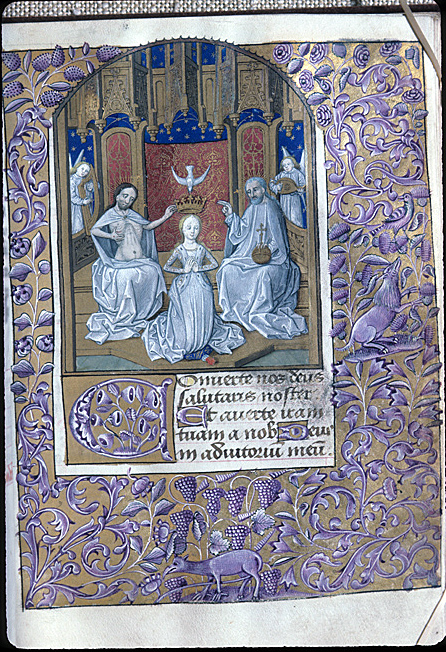 Onuerte nos deus
salutaris noster
Et auerte iram
tuam a nob Deus
in adiutoriu meu